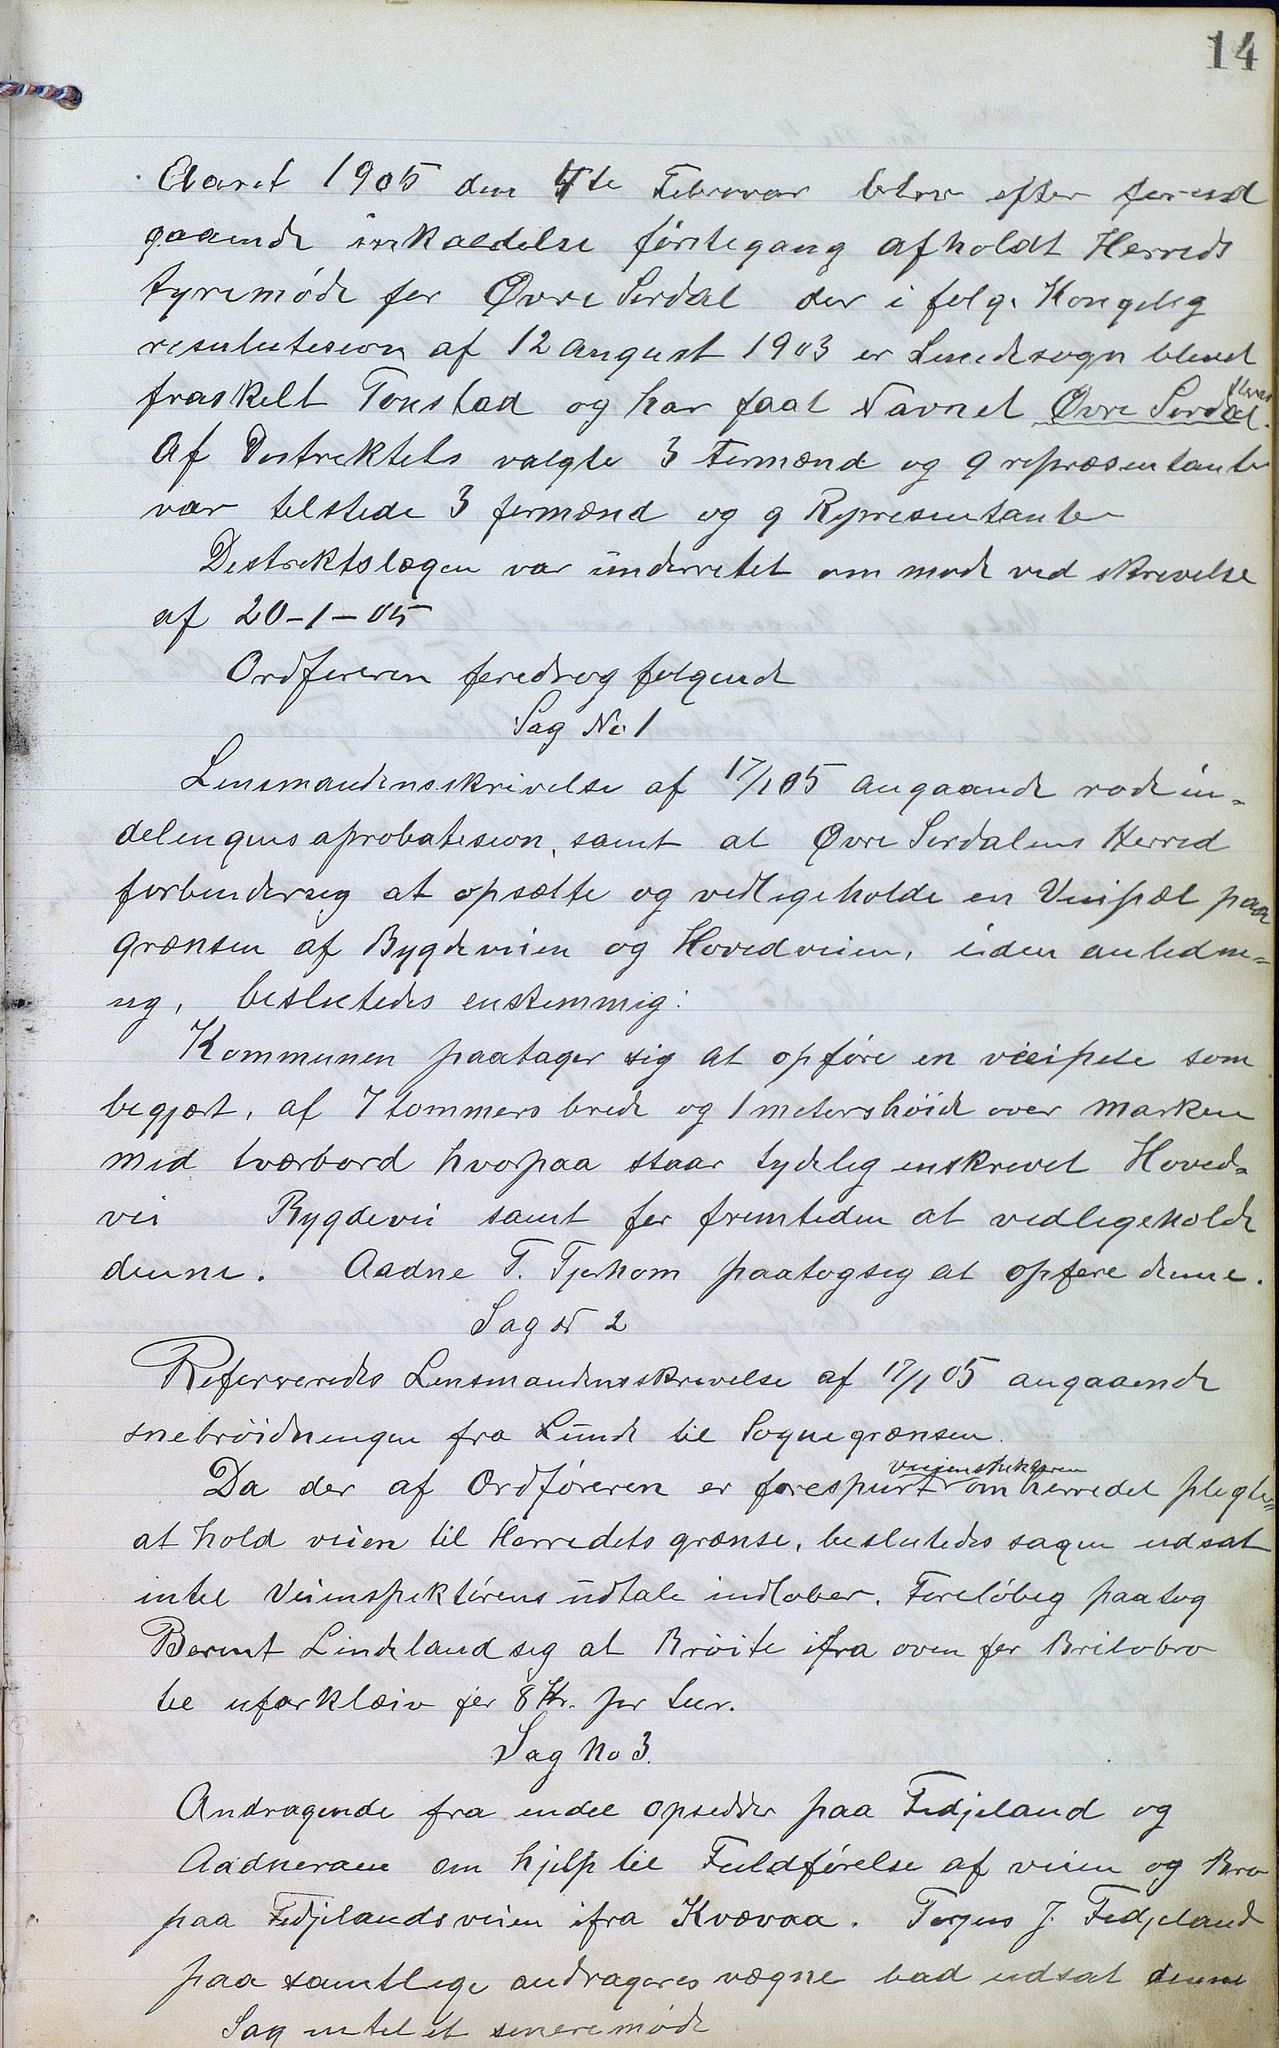 14
Aaret 1905 den 4de Februar blev efter forud
gaaende inkaldelse förstegang afholdt Herreds
tyremöde for Øvre Sirdal der i følge Kongelig
resulutesion af 12 august 1903 er Lunde sogn blevet
fraskelt Tonstad og har faat Navnet Øvre Sirdal.
Af Destrektets valgte 3 Formænd og 9 repræsentante
var telstede 3 formænd og 9 Representante
Destrektslægen var underretet om møde ved skrevelse
af 20-1-05
Ordføreren foredrog følgende
Sag No 1
Lensmandens skrivelse af 17/1 05 angaaende rodein-
delengens aprobatesion, samt at Øvre Sirdalens Herred
forbinder sig at opsætte og vedligeholde en Veipæl paa
grænsen af Bygdeveien og Hovedveien, i den anledne-
ng, beslutedes enstemmig:
Kommunen paatager sig at opföre en veipele som
begjært, af 7 tommers brede og 1 meters höide over marken
med tværbord hvorpaa staar tydeleg enskrevet Hoved-
vei Bygdevei samt for fremteden at vedlegeholde
denne. Aadne T. Tjorhom paatog sig at opføre denne.
Sag N 2
Refereredes Lensmandens skrevelse af 17/1 05 angaaende
snebröidningen fra Lunde til Sognegrænsen.
veiinspektøren
Da der af Ordföreren er forespurt om herredet plegter
at hold veien til Herredets grænse, beslutedes sagen udsat
intel Veiinspektörens udtale indløber. Foreløbig paatog
Bernt Lindeland sig at Bröite ifra oven for Brelobro
tel ufærklæiv for 8 Kr. per tur.
Sag No 3.
Andragende fra endel opsedder paa Fedjeland og
Aadneram om hjelp til Fuldførelse af veien og Bro
paa Fedjelandsveien ifra Kvævaa. Torjus J. Fedjeland
paa samtlege andrageres vægne bad udsat denne
Sag intel et senere möde